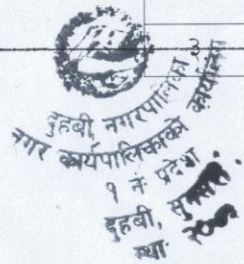 दुहवी, नगरपालिका
नगर कार्यपालिकाको कार्यालय
१ नं. प्रदेश
दुहवी, सुनसरी
स्था.